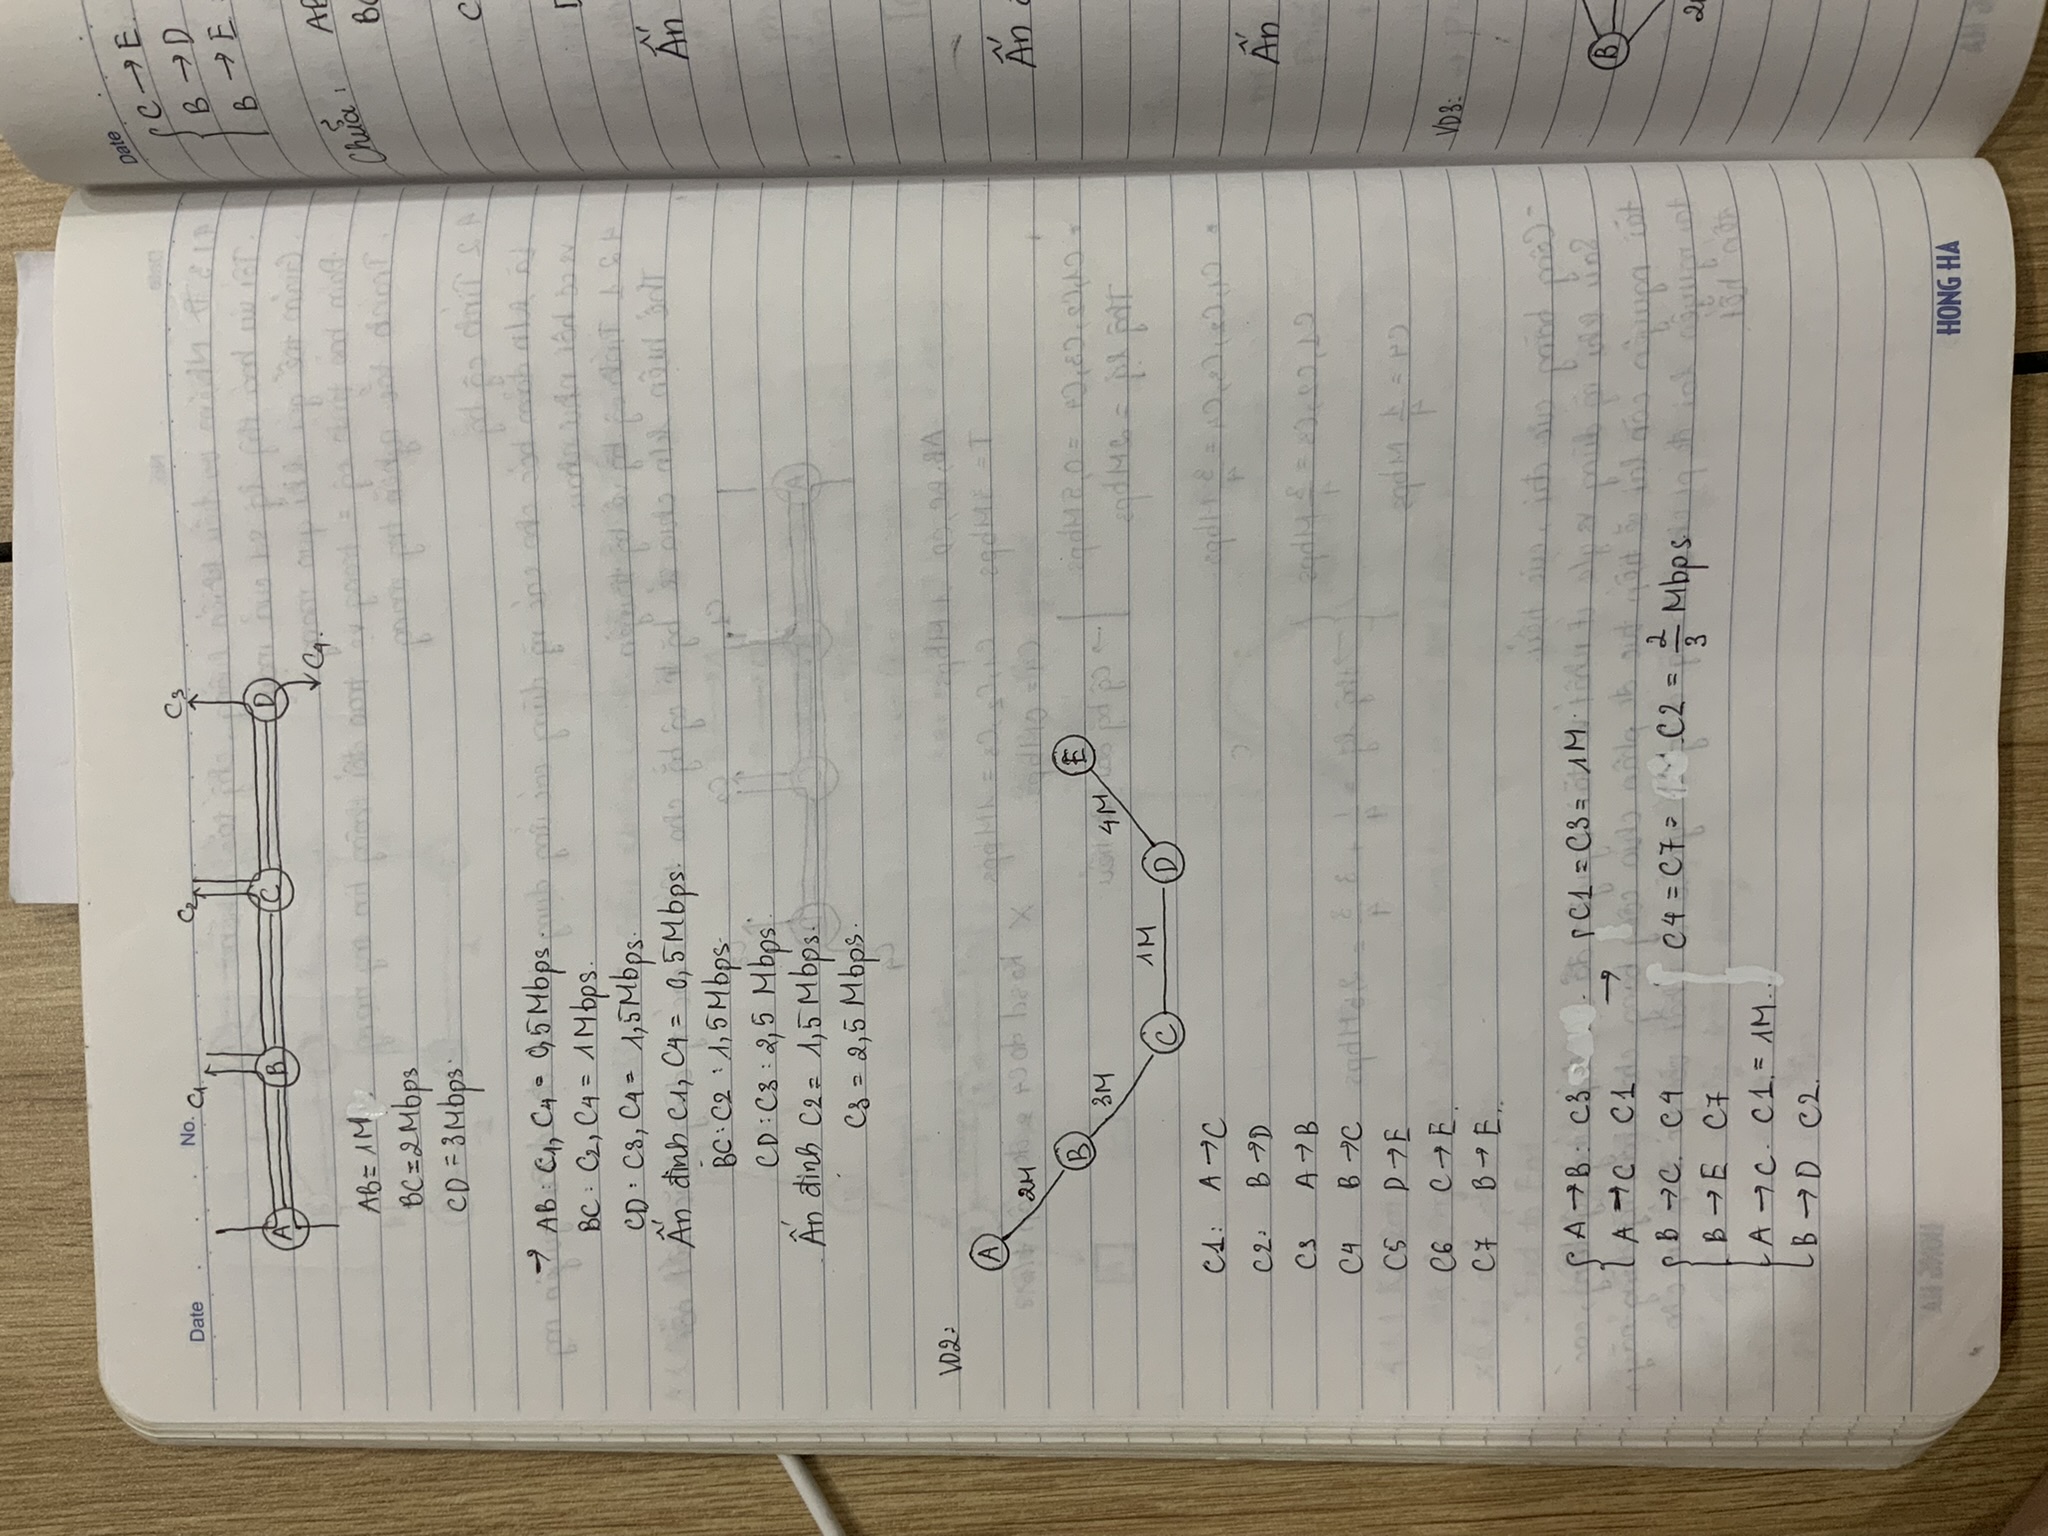 Date
No.
C1
C2
C3
A
B
C
D
C4.
AB = 1M
BC = 2Mbps
CD = 3Mbps.
→ AB : C1, C4 = 0,5Mbps.
BC : C2, C4 = 1Mbps.
CD : C3, C4 = 1,5Mbps.
Ấn định C1, C4 = 0,5Mbps.
BC : C2 : 1,5Mbps.
CD : C3 : 2,5 Mbps.
Ấn định C2 = 1,5Mbps.
C3 = 2,5 Mbps.
VD2:
A
2M
B
E
3M
4M
1M
C
D
C1: A → C
C2: B → D
C3 A → B
C4 B → C
C5 D → E
C6 C → E.
C7 B → E..
A → B : C3 → C1 = C3 = 1M.
A → C C1
B → C. C4 C4 = C7 = C2 = 2/3 Mbps.
B → E C7
A → C. C1. = 1M..
B → D C2.
HONG HA
Date
C → E.
B → D
B → E
Chưa:
Ấn
Ấn
Ấn
VD3:
B